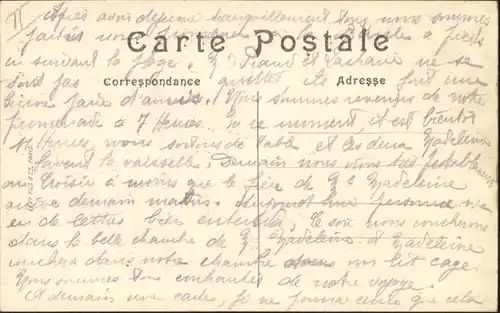 II
Après avoir déjeuné tranquillement tous nous sommes
partis nous promener à la à pieds
en suivant la plage. Mr Piaud et Zacharie ne se
Carte Postale
sont pas quittés ils font une
Correspondance Adresse
bonne paire d'amis. Nous sommes revenus de notre
promenade à 7 heures. En ce moment, il est bientôt
heures, nous sortons de table et les deux Madeleine
lavent la vaisselle. Demain nous
au Croisic à moins que le frère de Me Madeleine
arrive demain matin. Aujourd'hui personne n'a
eu de lettres bien entendu. Ce soir nous coucherons
dans la belle chambre de Me Madeleine et Madeleine
couchera dans notre chambre dans un lit cage.
Nous sommes tous enchantés de notre voyage.
A demain une carte, je ne pourrai écrire que cela